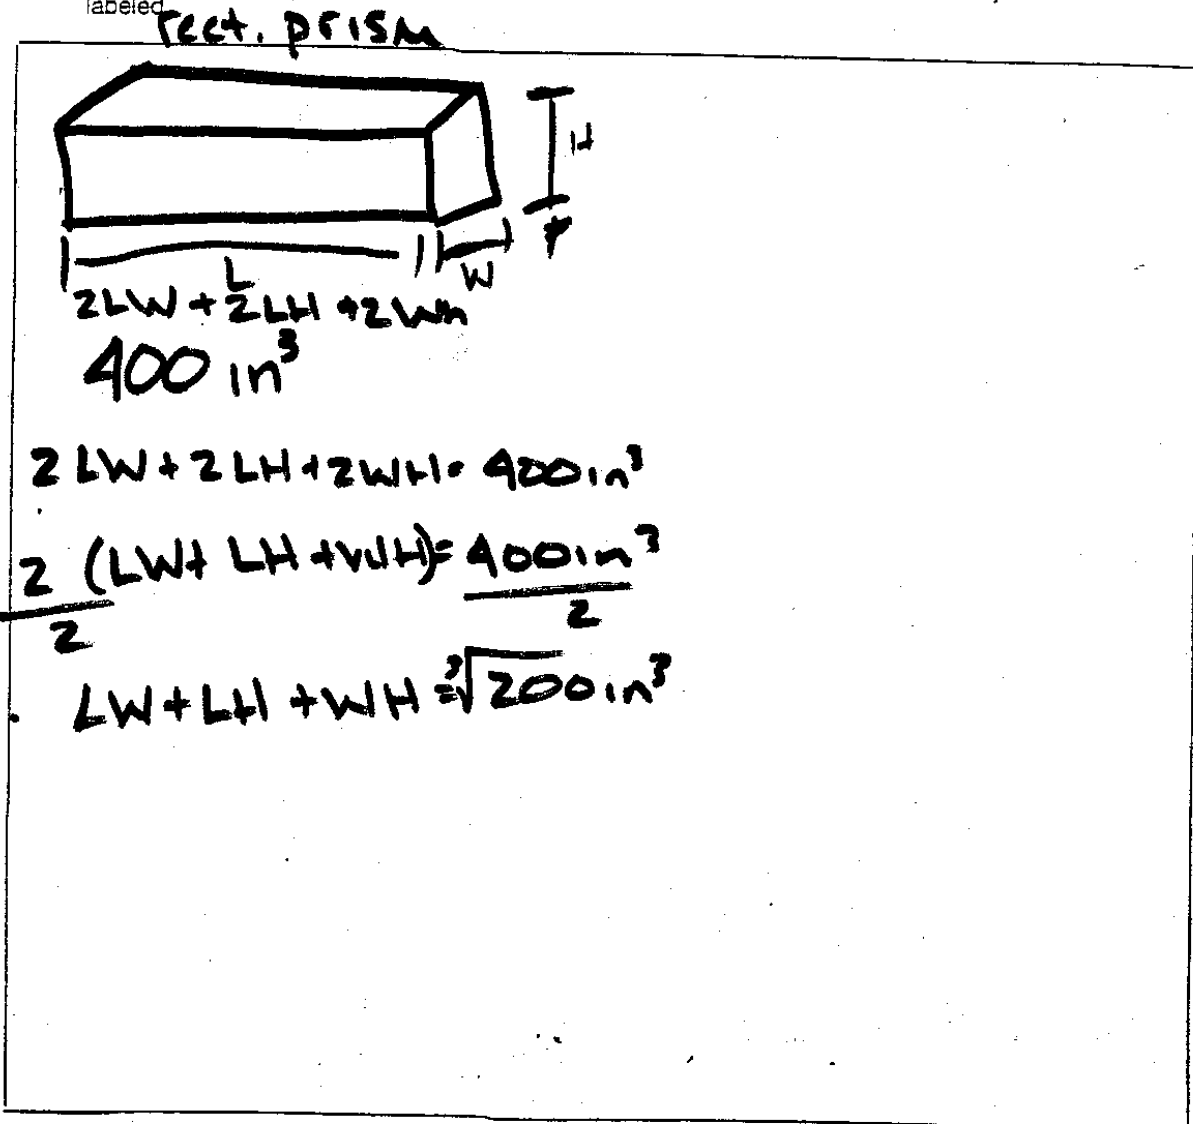 labeled
rect. prism
H
L
W
2LW + 2LH + 2Wh
400 in³
2 LW + 2 LH + 2WH = 400 in³
2 (LW + LH + WH) = 400 in³
2 2
LW + LH + WH = ³√200 in³